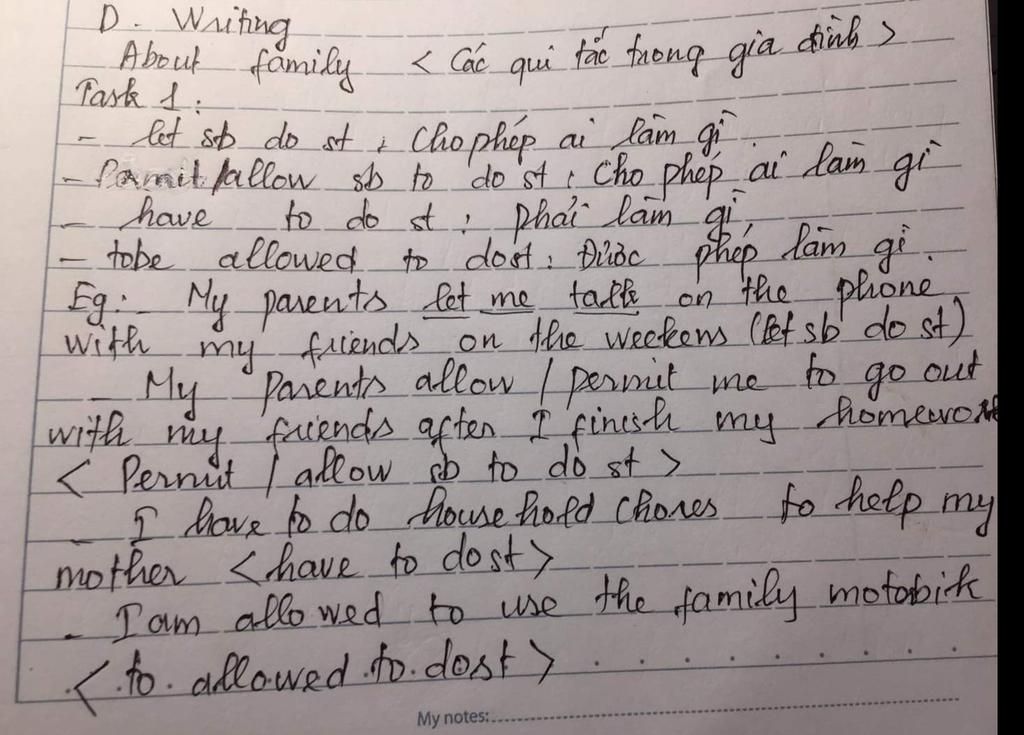 D. Writing
About family < Các qui tắc trong gia đình >
Task 1:
- let sb do st : Cho phép ai làm gì
- Permit/allow sb to do st : Cho phép ai làm gì
- have to do st : phải làm gì
- tobe allowed to dost : Được phép làm gì.
Eg: - My parents let me talk on the phone
with my friends on the weekens (let sb do st)
- My parents allow / permit me to go out
with my friends after I finish my homework
< Permit / allow sb to do st >
- I have to do house hold chores to help my
mother < have to do st >
- I am allowed to use the family motobik
< to allowed to dost >
My notes: